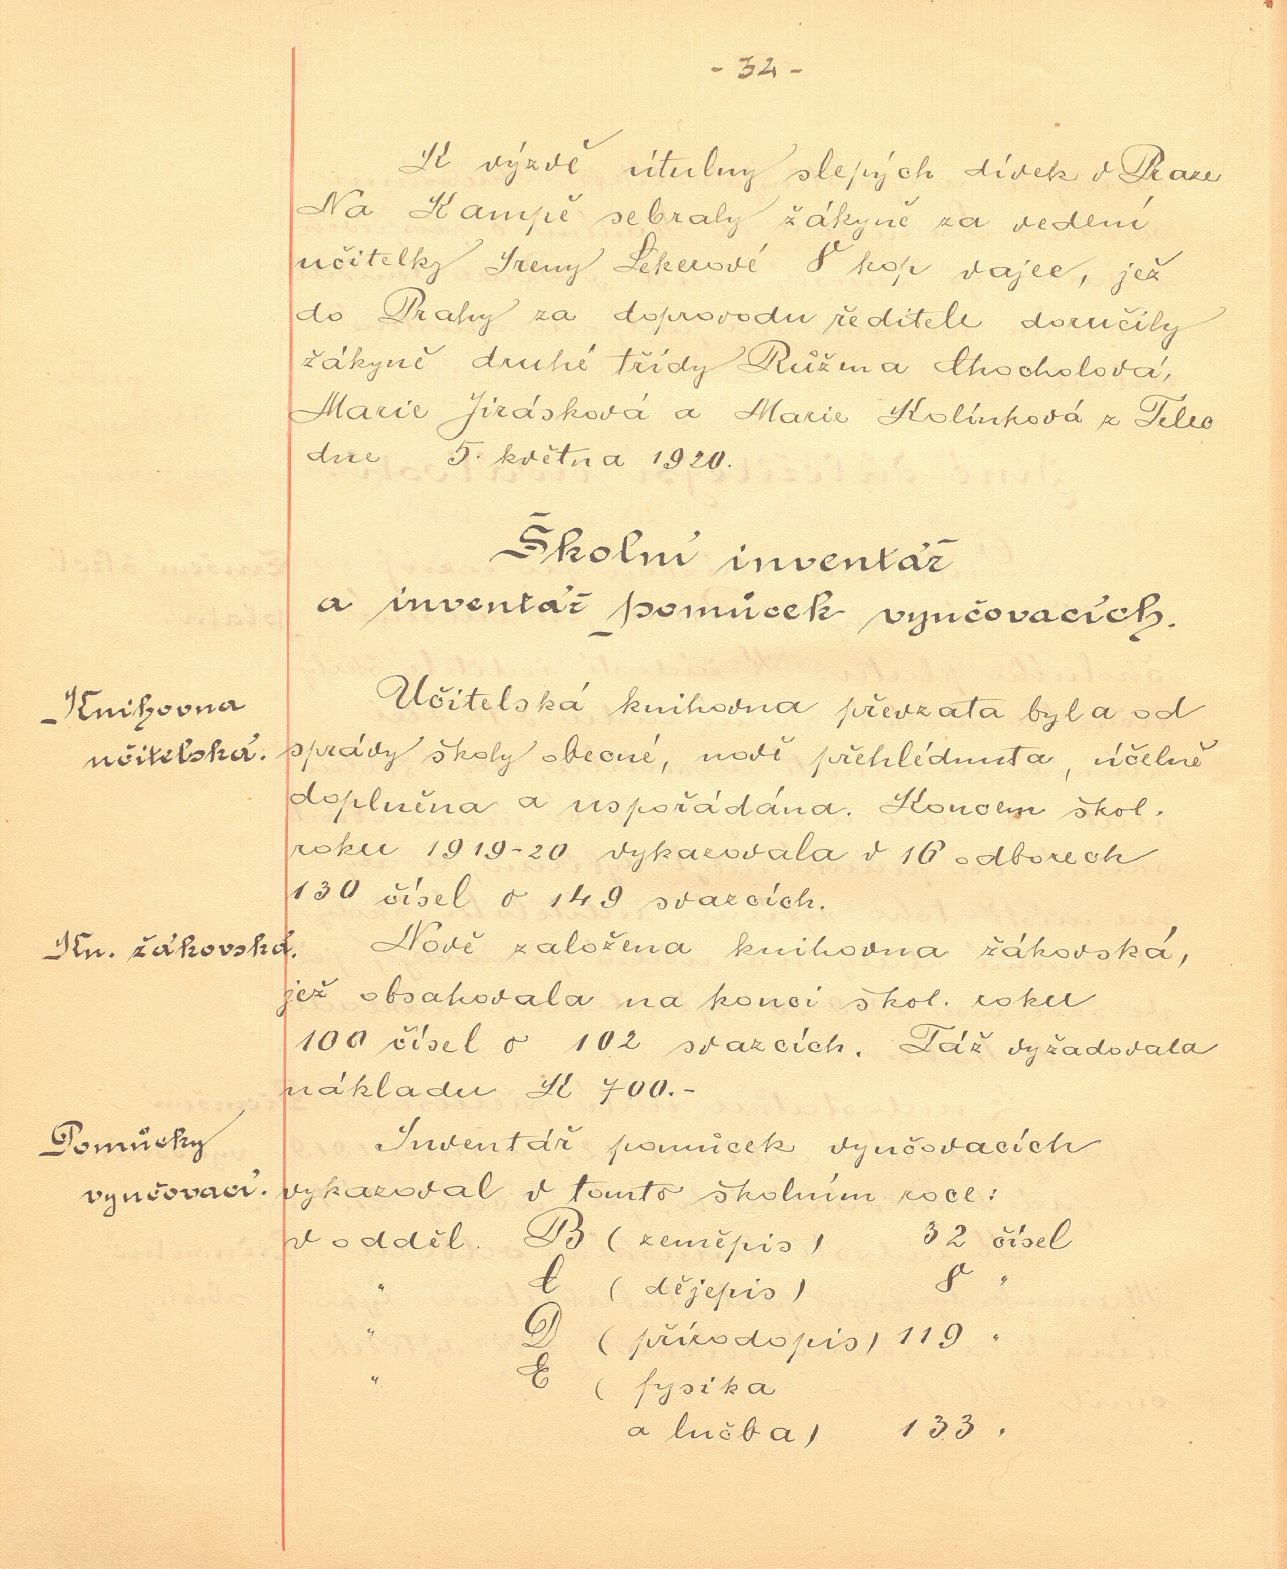 - 32 -
K výzvě útulny slepých dívek v Praze
Na Kampě sebraly žákyně za vedení
učitelky Ireny Lekerové 8 kop vajec, jež
do Prahy za doprovodu ředitele doručily
žákyně druhé třídy Růžena Chocholová,
Marie Jirásková a Marie Kolínková z Telec
dne 5. května 1920.
Školní inventář
a inventář pomůcek vyučovacích.
Knihovna
učitelská.
Učitelská knihovna převzata byla od
správy školy obecné, nově přehlédnuta, účelně
doplněna a uspořádána. Koncem škol.
roku 1919-20 vykazovala v 16 odborech
130 čísel o 149 svazcích.
Kn. žákovská.
Nově založena knihovna žákovská,
jež obsahovala na konci škol. roku
100 čísel o 102 svazcích. Táž vyžadovala
nákladu K 700.-
Pomůcky
vyučovací.
Inventář pomůcek vyučovacích
vykazoval v tomto školním roce:
v odděl. B (zeměpis) 32 čísel
" C (dějepis) 8 "
" D (přírodopis) 119 "
" E (fysika
a lučba) 133 "